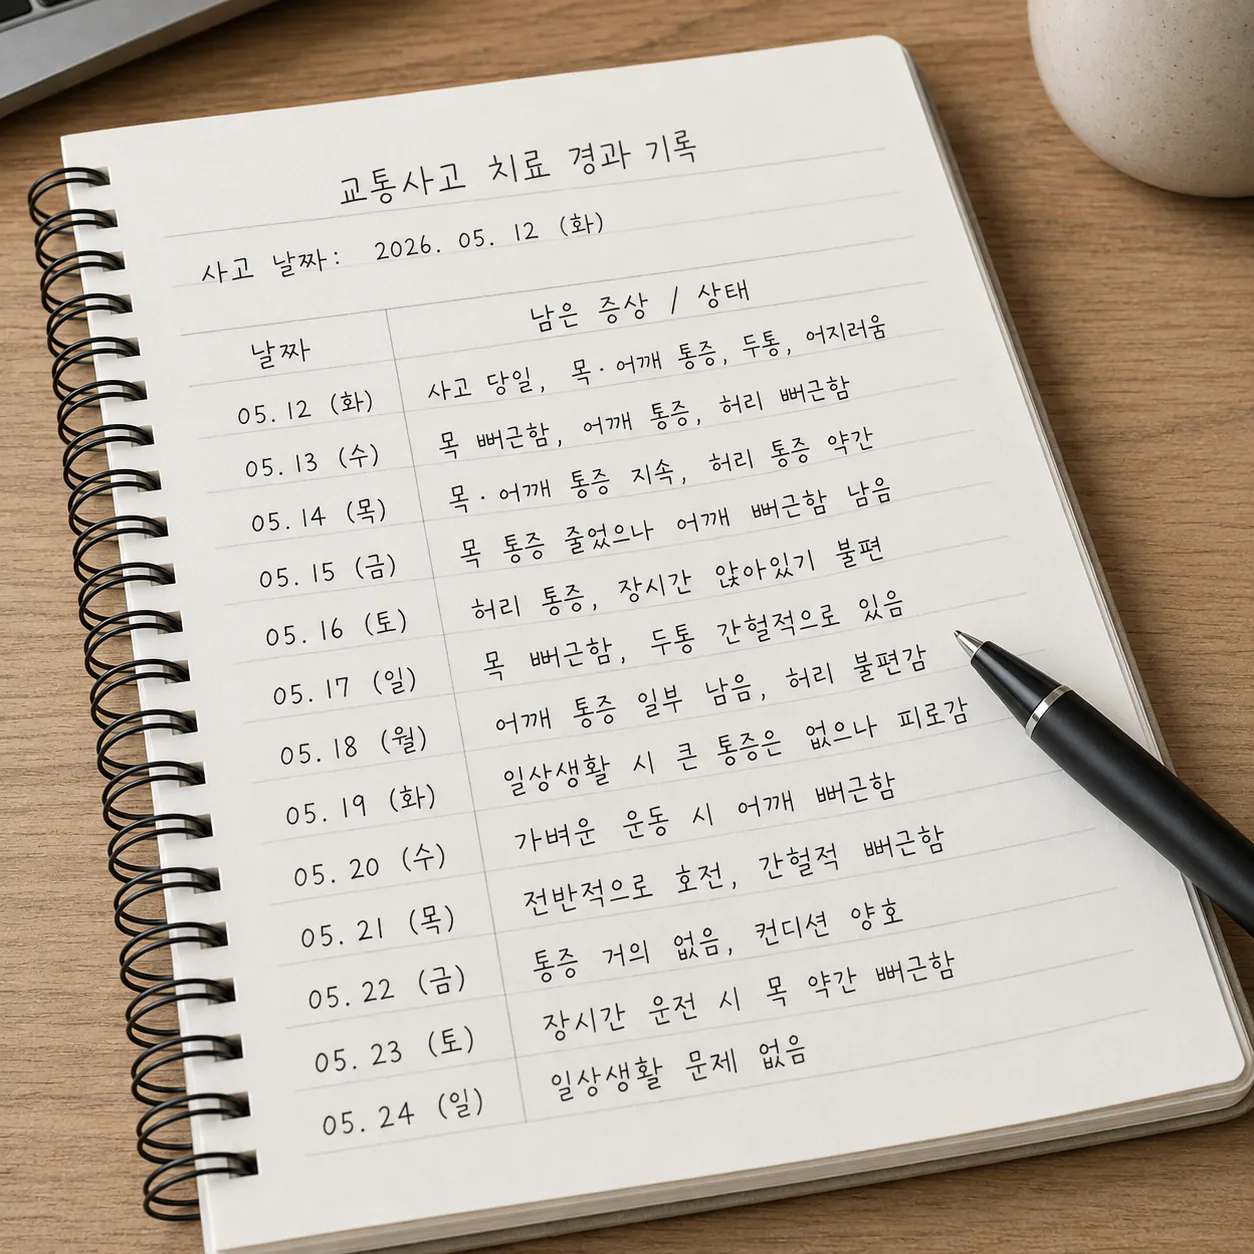 교통사고 치료 경과 기록
사고 날짜: 2026. 05. 12 (화)
날짜 남은 증상 / 상태
05. 12 (화) 사고 당일, 목·어깨 통증, 두통, 어지러움
05. 13 (수) 목 뻐근함, 어깨 통증, 허리 뻐근함
05. 14 (목) 목·어깨 통증 지속, 허리 통증 약간
05. 15 (금) 목 통증 줄었으나 어깨 뻐근함 남음
05. 16 (토) 허리 통증, 장시간 앉아있기 불편
05. 17 (일) 목 뻐근함, 두통 간헐적으로 있음
05. 18 (월) 어깨 통증 일부 남음, 허리 불편감
05. 19 (화) 일상생활 시 큰 통증은 없으나 피로감
05. 20 (수) 가벼운 운동 시 어깨 뻐근함
05. 21 (목) 전반적으로 호전, 간헐적 뻐근함
05. 22 (금) 통증 거의 없음, 컨디션 양호
05. 23 (토) 장시간 운전 시 목 약간 뻐근함
05. 24 (일) 일상생활 문제 없음